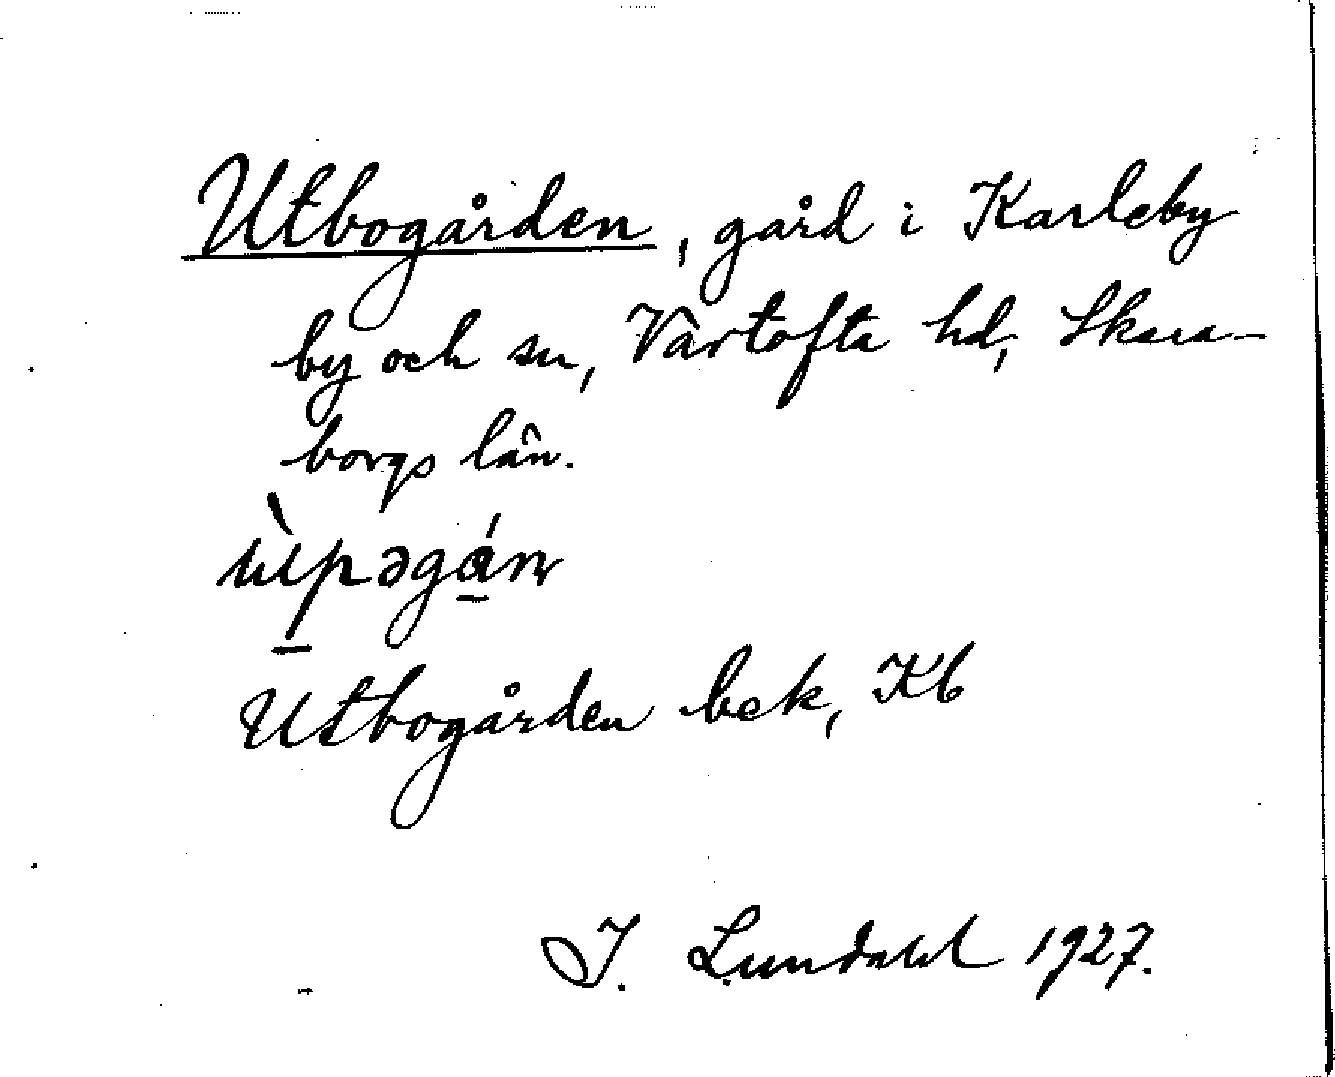 Utbogården, gård i Karleby
by och sn, Vartofta hd, Skara-
borgs län.
Utbogården bek, Kb
I. Lundahl 1927.